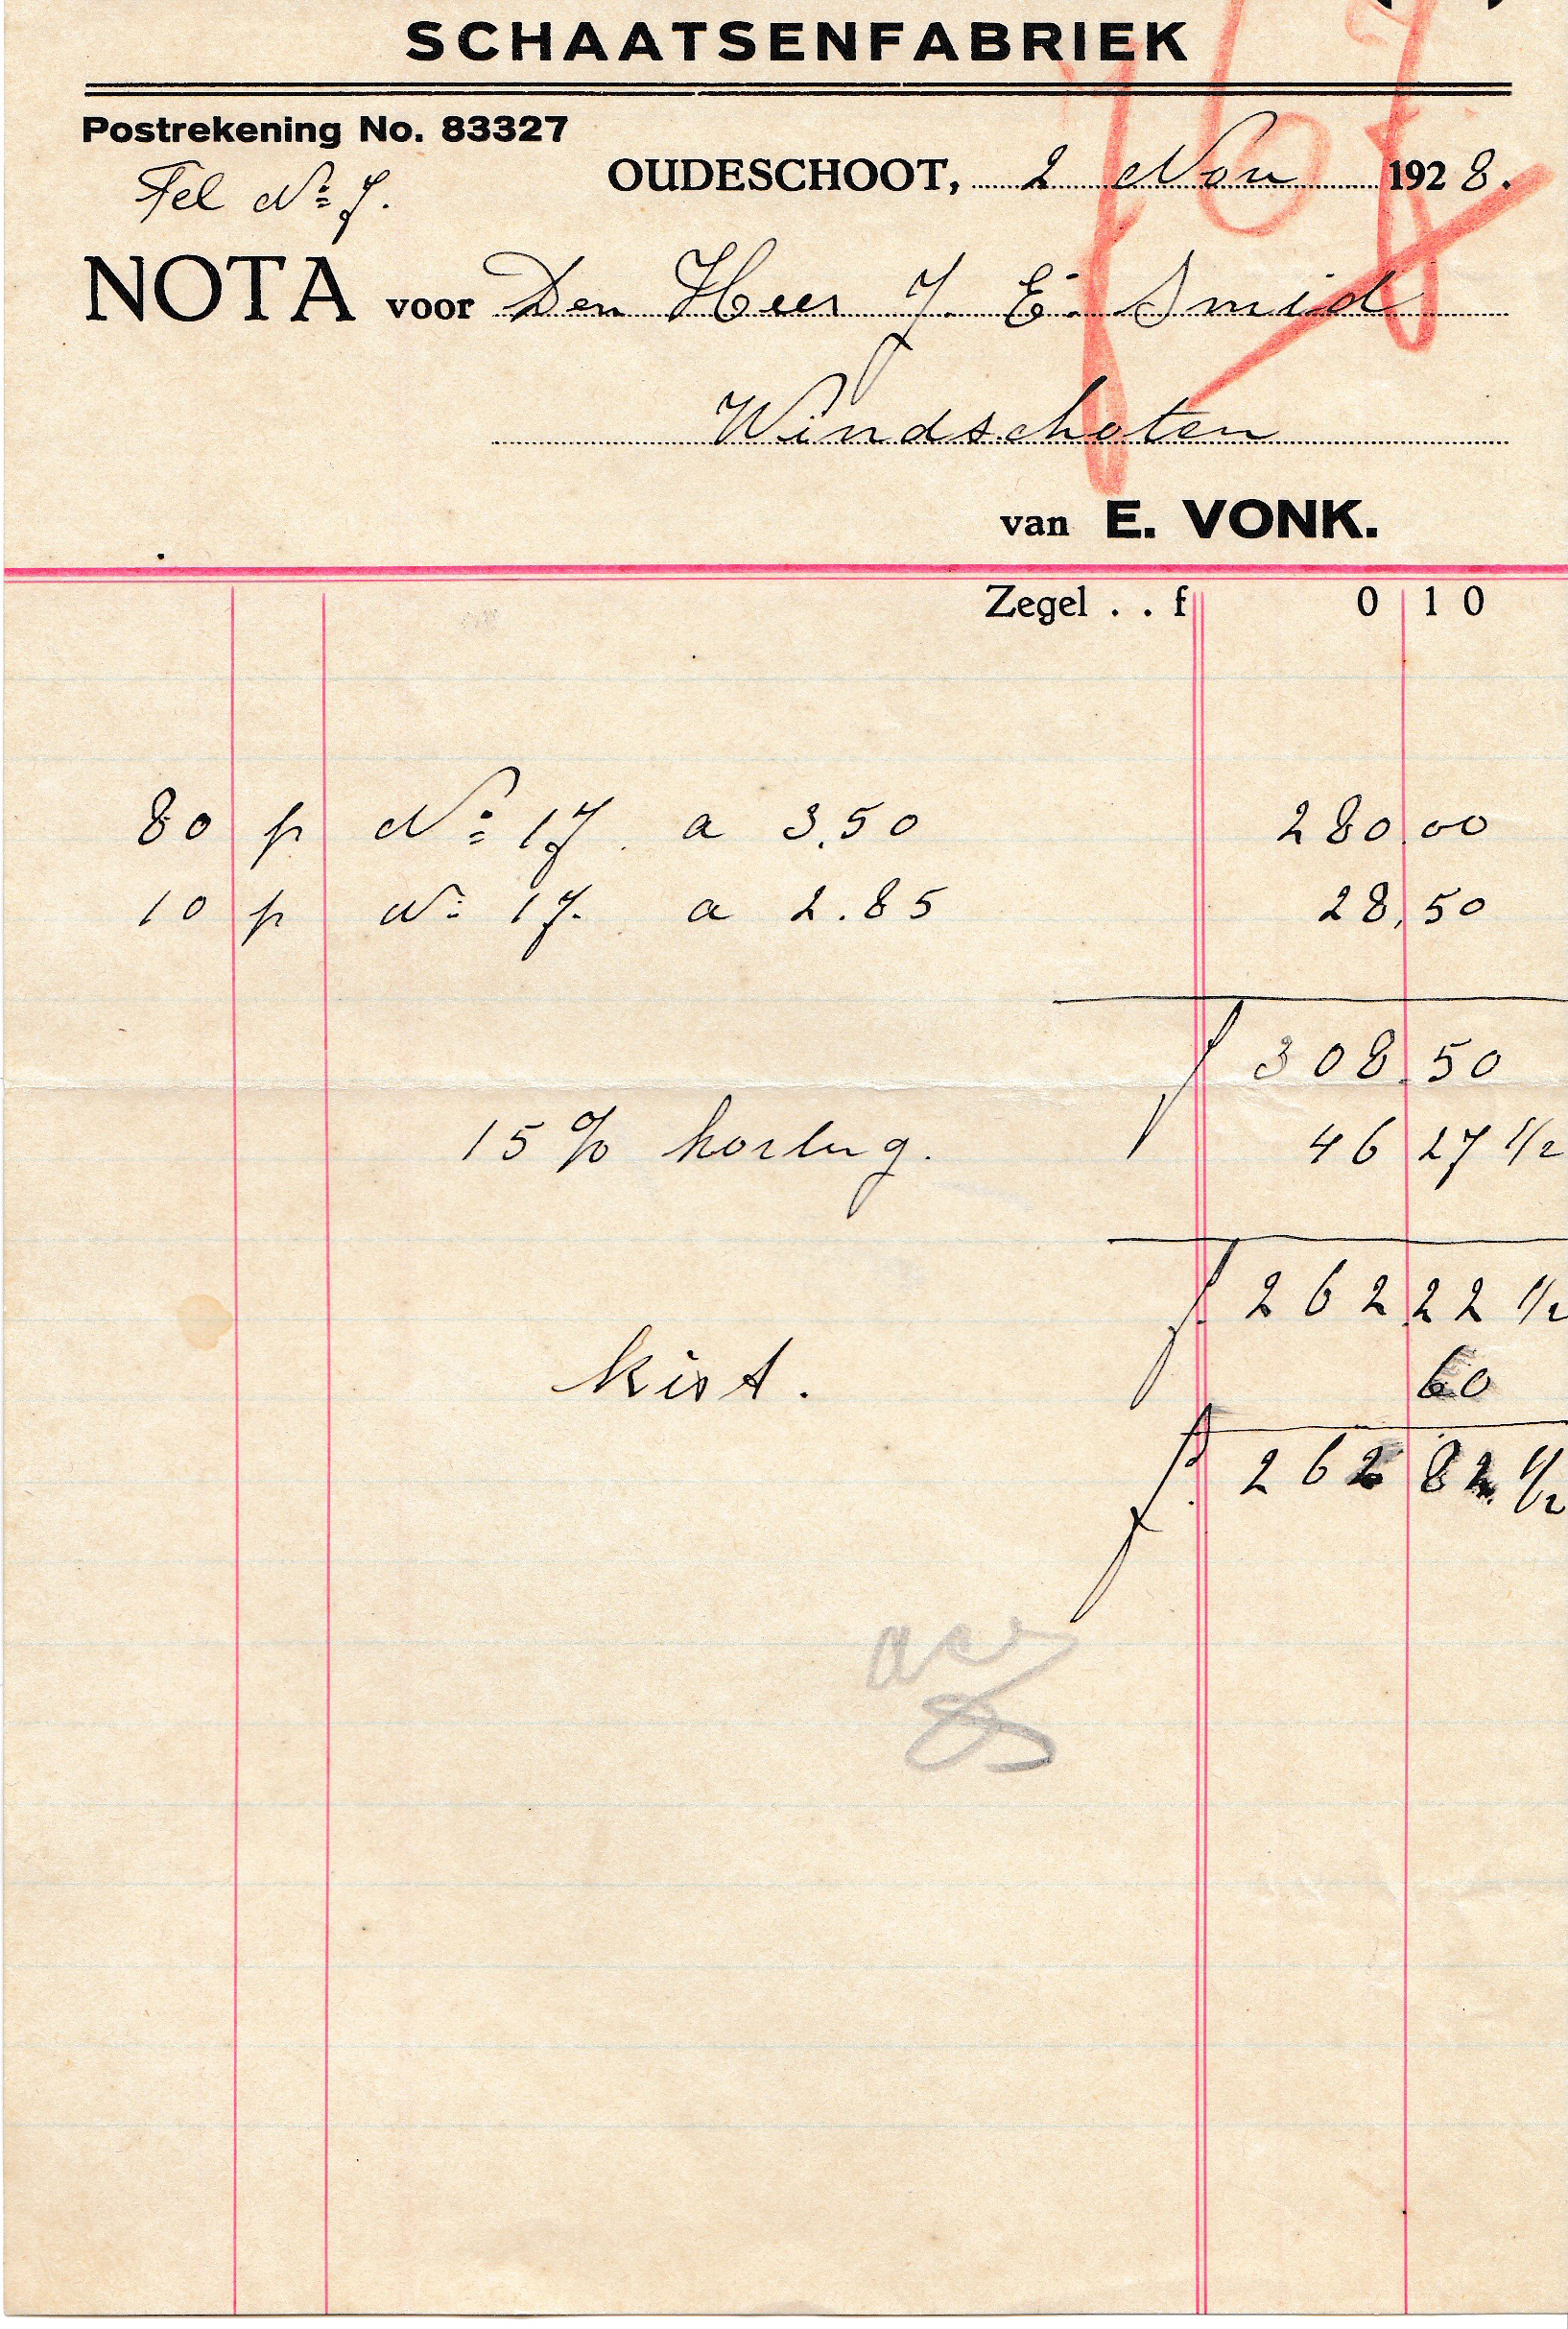 SCHAATSENFABRIEK
Postrekening No. 83327
Tel No 7.
OUDESCHOOT, 2 Nov 1928.
NOTA voor Den Heer J. E. Smid
Windschoten
van E. VONK.
Zegel . . f 0 10
80 p No 17. a 3.50 280.00
10 p No 17. a 2.85 28,50
f 308.50
15 % korting. 46 27 1/2
f 262 22 1/2
kist. 60
f 262 82 1/2